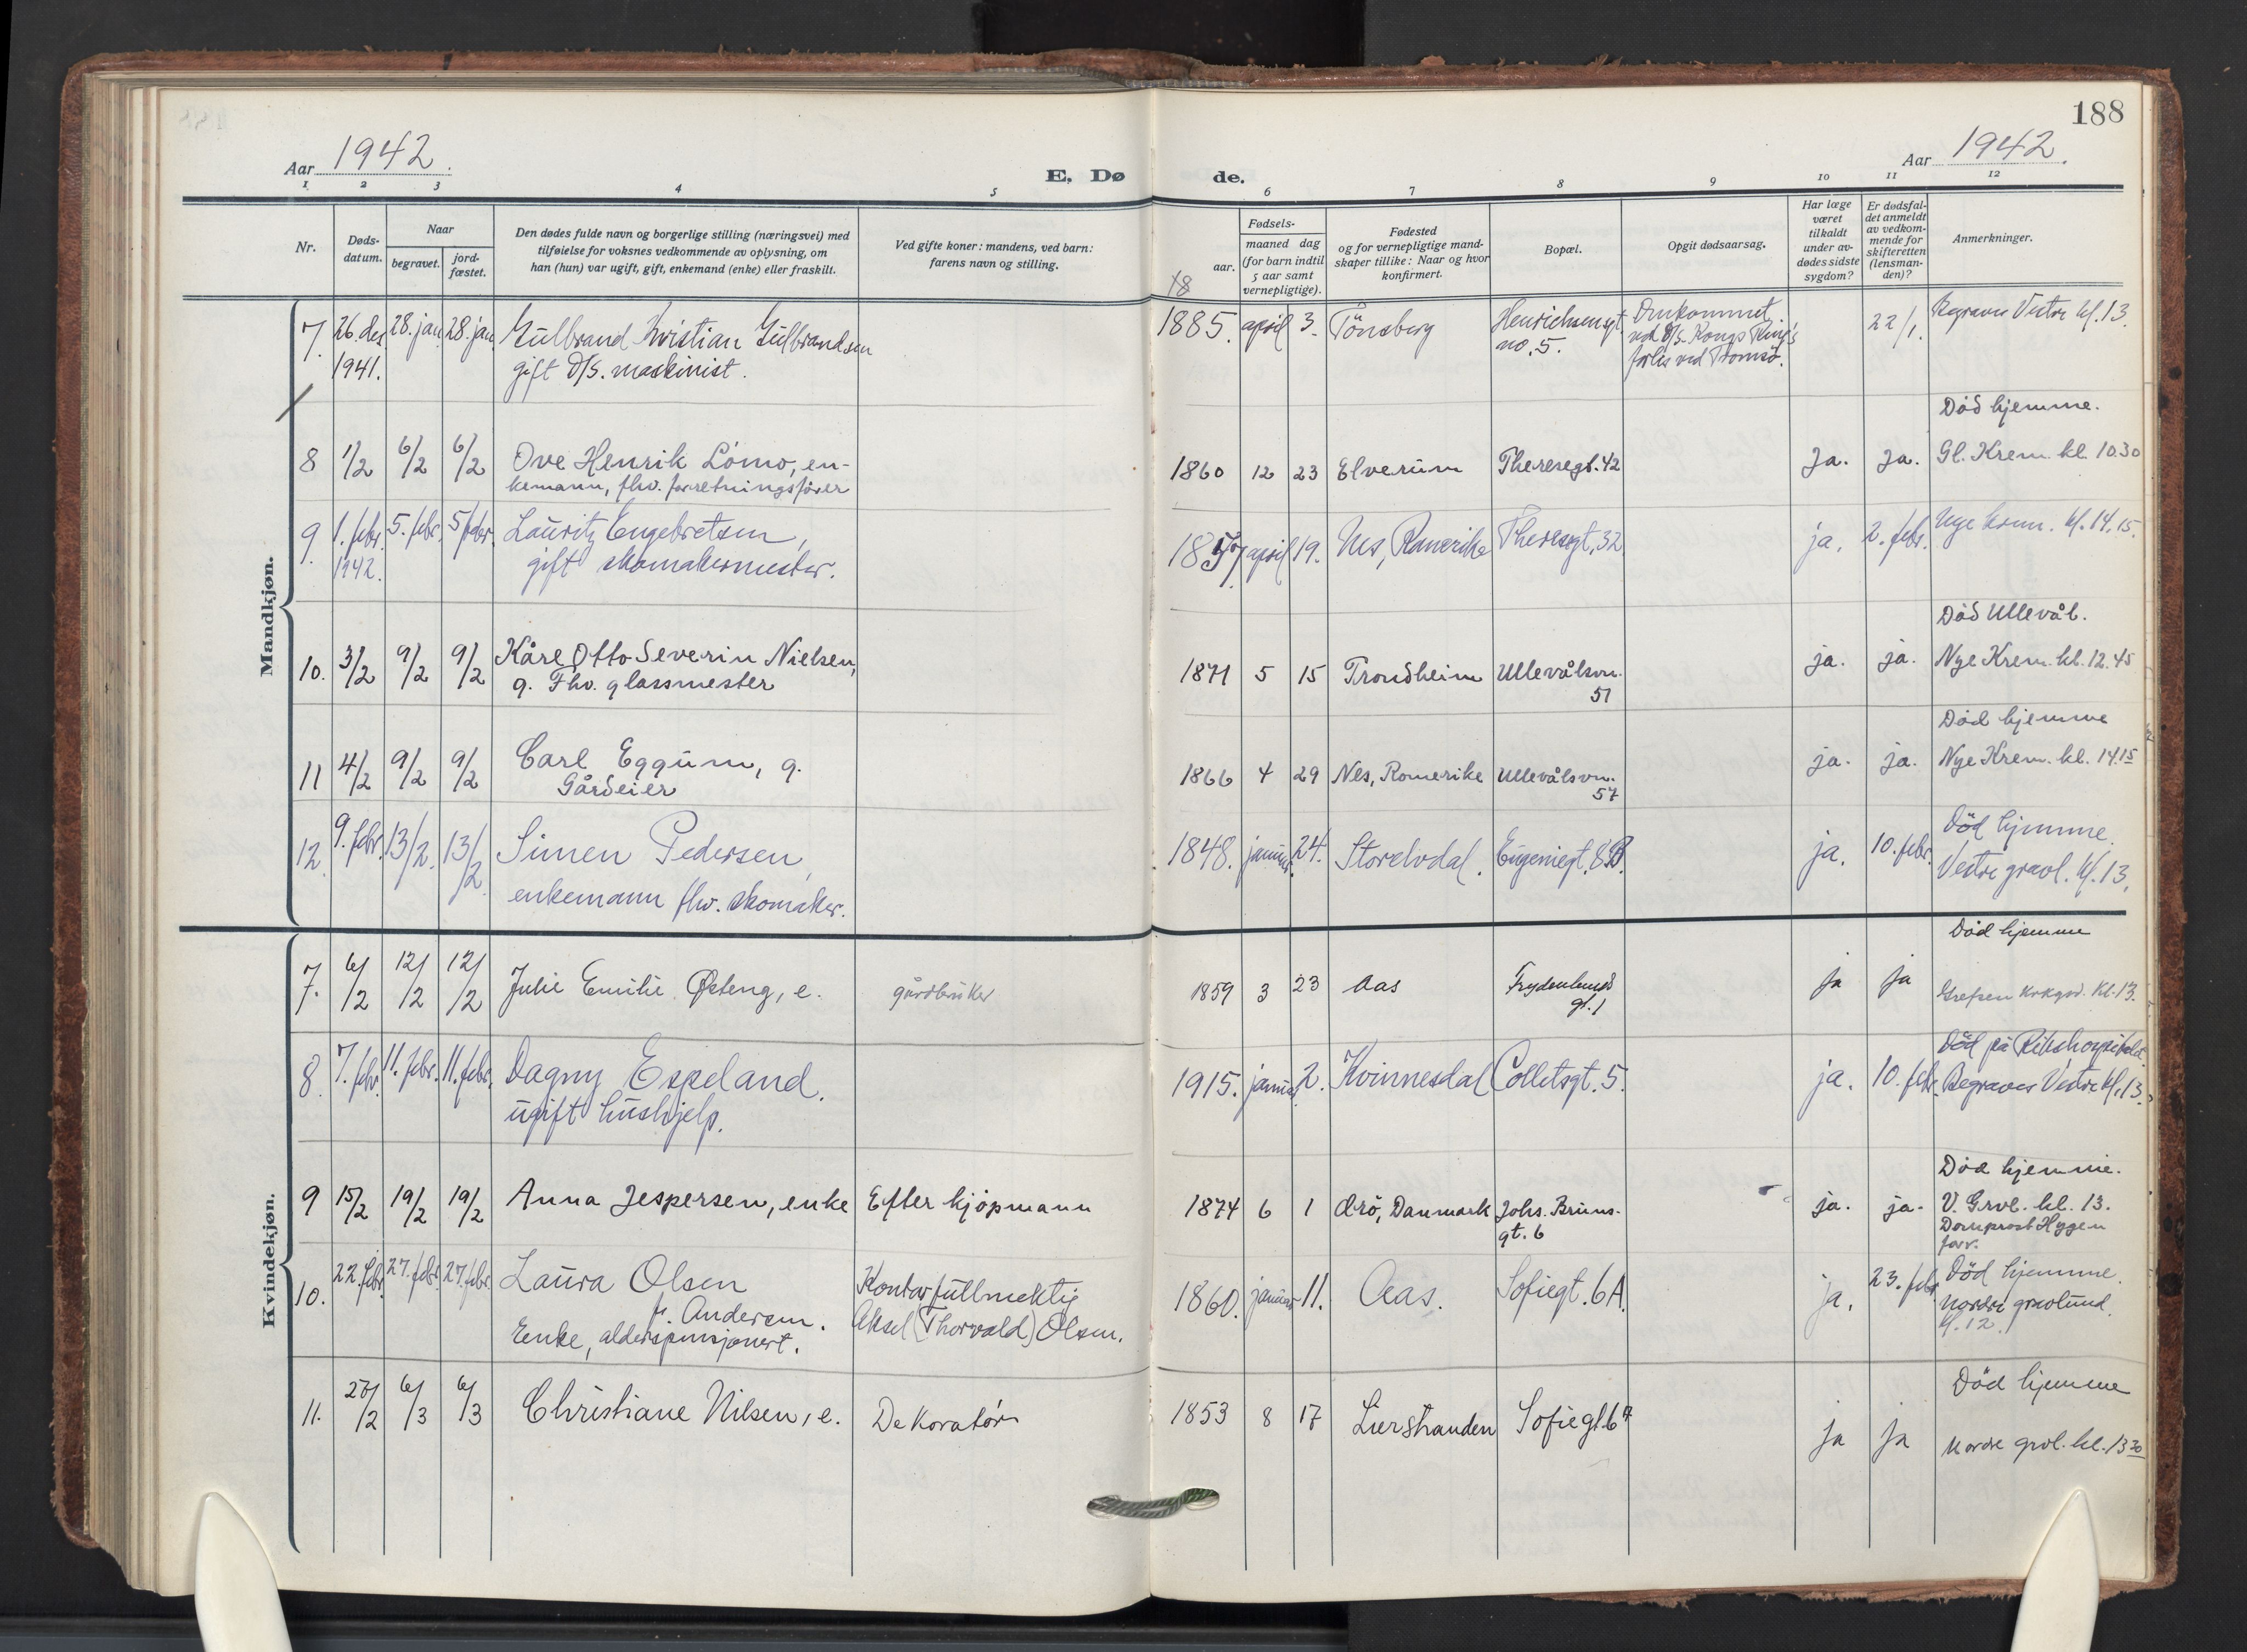 188
Aar 1942.
E. Dø
de.
Aar 1942.
1 2 3 4 5 6 7 8 9 10 11 12
Nr.
Døds-
datum.
Naar
begravet.
jord-
fæstet.
Den dødes fulde navn og borgerlige stilling (næringsvei) med
tilføielse for voksnes vedkommende av oplysning, om
han (hun) var ugift, gift, enkemand (enke) eller fraskilt.
Ved gifte koner: mandens, ved barn:
farens navn og stilling.
Fødsels-
aar.
maaned dag
(for barn indtil
5 aar samt
vernepligtige).
Fødested
og for vernepligtige mand-
skaper tillike: Naar og hvor
konfirmert.
Bopæl.
Opgit dødsaarsag.
Har læge
været
tilkaldt
under av-
dødes sidste
sygdom?
Er dødsfal-
det anmeldt
av vedkom-
mende for
skifteretten
(lensman-
den)?
Anmerkninger.
18
Mandkjøn.
7. 26 des. 28. jan. 28. jan. Gulbrand Kristian Gulbrandsen 1885. april 3. Tönsberg Henrichsensgt. Omkommet 22/1. Begraves Vestre kl. 13.
1941. gift D/S. maskinist. no. 5. ved D/S. Kongs Ring's
forlis ved Tromsö.
Död hjemme.
8 1/2 6/2 6/2 Ove Henrik Lömo, en- 1860 12 23 Elverum Theresegt. 42 Ja. Ja. Gl. Krem. kl. 10.30
kemann, fhv. forretningsfører
9. 1. febr. 5. febr. 5 febr. Lauritz Engebretsen, 1857. april 19. Nes, Romerike Theresegt. 32 ja. 2. febr. Nye krem. kl. 14.15.
1942. gift skomakermester.
Död Ullevål.
10. 3/2 9/2 9/2 Kåre Otto Severin Nielsen, 1871 5 15 Trondheim Ullevålsvn. ja. ja. Nye Krem. kl. 12.45
g. Fhv. glassmester 51
Död hjemme
11 4/2 9/2 9/2 Carl Eggum, g. 1866 4 29 Nes, Romerike Ullevålsvn. ja. ja. Nye Krem. kl. 14.15
Gårdeier 57
Död hjemme.
12. 9. febr. 13/2. 13/2 Simen Pedersen, 1848. januar. 24. Storelvdal. Eugeniegt. 8B. ja. 10. febr. Vestre gravl. kl. 13.
enkemann fhv. skomaker.
Kvindekjøn.
Död hjemme
7. 6/2 12/2 12/2 Julie Emilie Østeng, e. gårdbruker 1859 3 23 Aas Frydenlunds ja ja Grefsen krkgrd. kl. 13.
gt. 1
Död på Rikshospitalet.
8. 7. febr. 11. febr. 11. febr. Dagny Espeland. 1915. januar. 2. Kvinnesdal Colletsgt. 5. ja. 10. febr. Begraves Vestre kl. 13.
ugift hushjelp.
Död hjemme.
9 15/2 19/2 19/2 Anna Jespersen, enke Efter kjöpmann 1874 6 1 Ærö, Danmark Johs. Bruns- ja. ja. V. Grvl. kl. 13.
gt. 6 Domprost Hygen
forr.
10. 22. febr. 27. febr. 27. febr. Laura Olsen Kontorfullmektig 1860. januar 11. Aas. Sofiegt. 6A. ja. 23. febr. Död hjemme.
f. Andersen. Aksel (Thorvald) Olsen. Nordre gravlund.
Enke, alderspensjonert. kl. 12.
Död hjemme
11. 27/2 6/3 6/3 Christiane Nilsen, e. Dekoratör 1853 8 17 Lierstranden Sofiegt 6A ja ja Nordre grvl. kl. 13 30